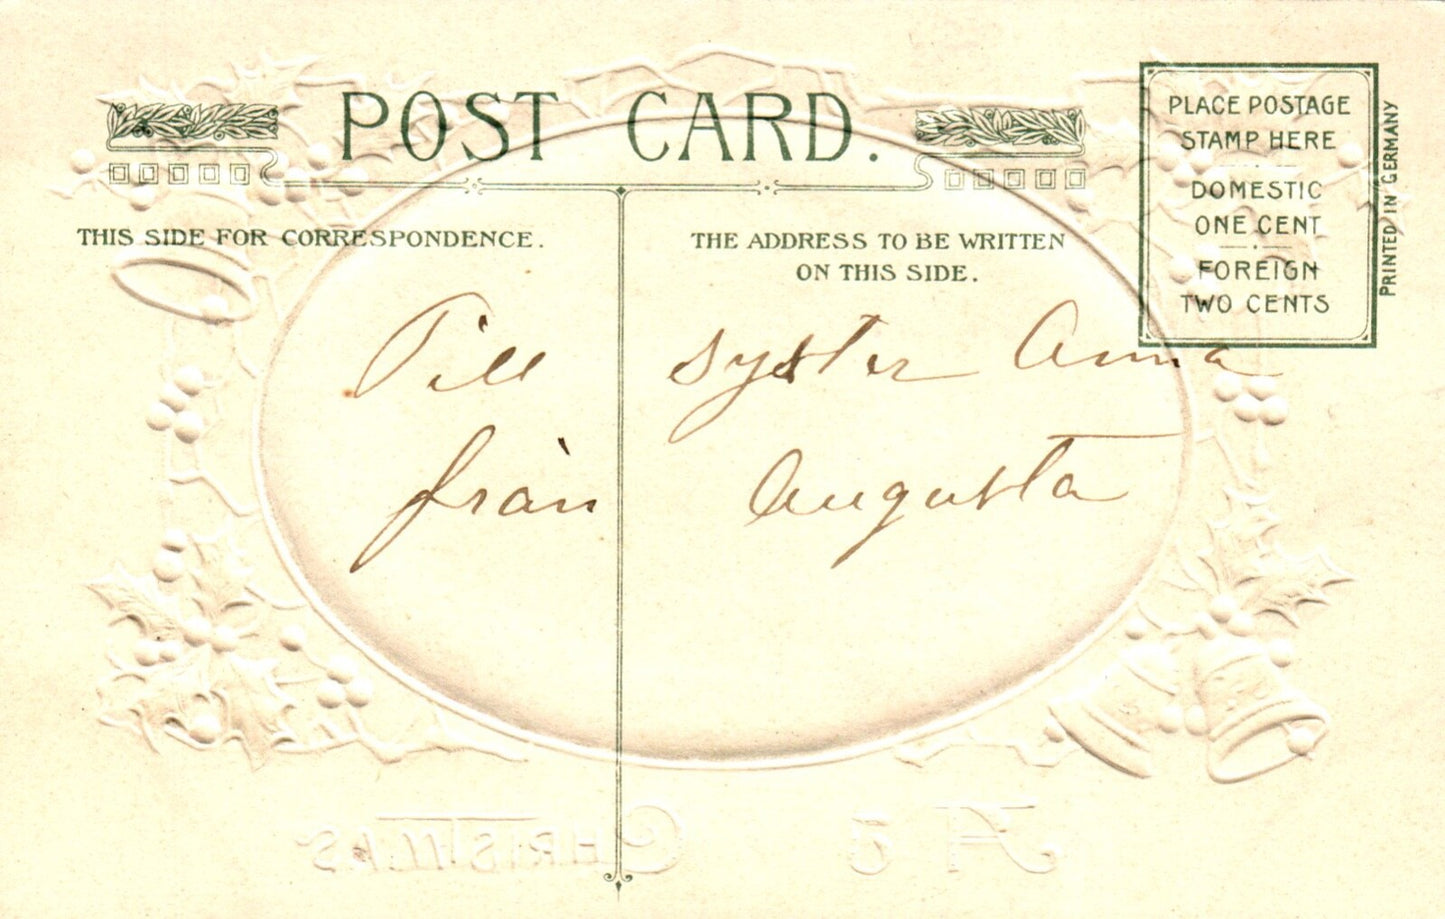 POST CARD.
THIS SIDE FOR CORRESPONDENCE.
THE ADDRESS TO BE WRITTEN
ON THIS SIDE.
PLACE POSTAGE
STAMP HERE
DOMESTIC
ONE CENT
FOREIGN
TWO CENTS
PRINTED IN GERMANY
Till syster Anna
från Augusta
CHRISTMAS